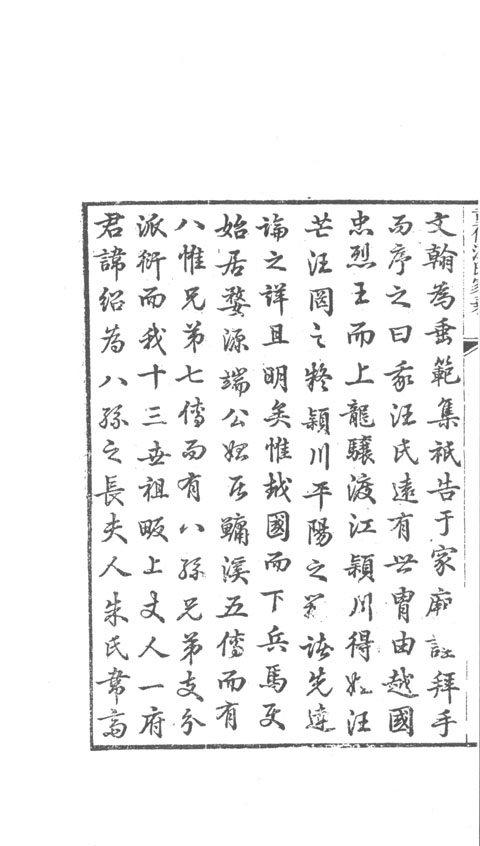 文翰為垂範集祇告于家廟拜手
而序之曰我汪氏遠有世胄由越國
忠烈王而上龍驤渡江穎川得姓汪
芒汪罔之疑穎川平陽之諸先達
論之詳且明矣惟越國而下兵馬
始居婺源端公始居鱅溪五傳而有
八惟兄弟七傳而有八孫兄弟支分
派衍而我十三世祖畈上丈人一府
君諱紹為八孫之長夫人朱氏